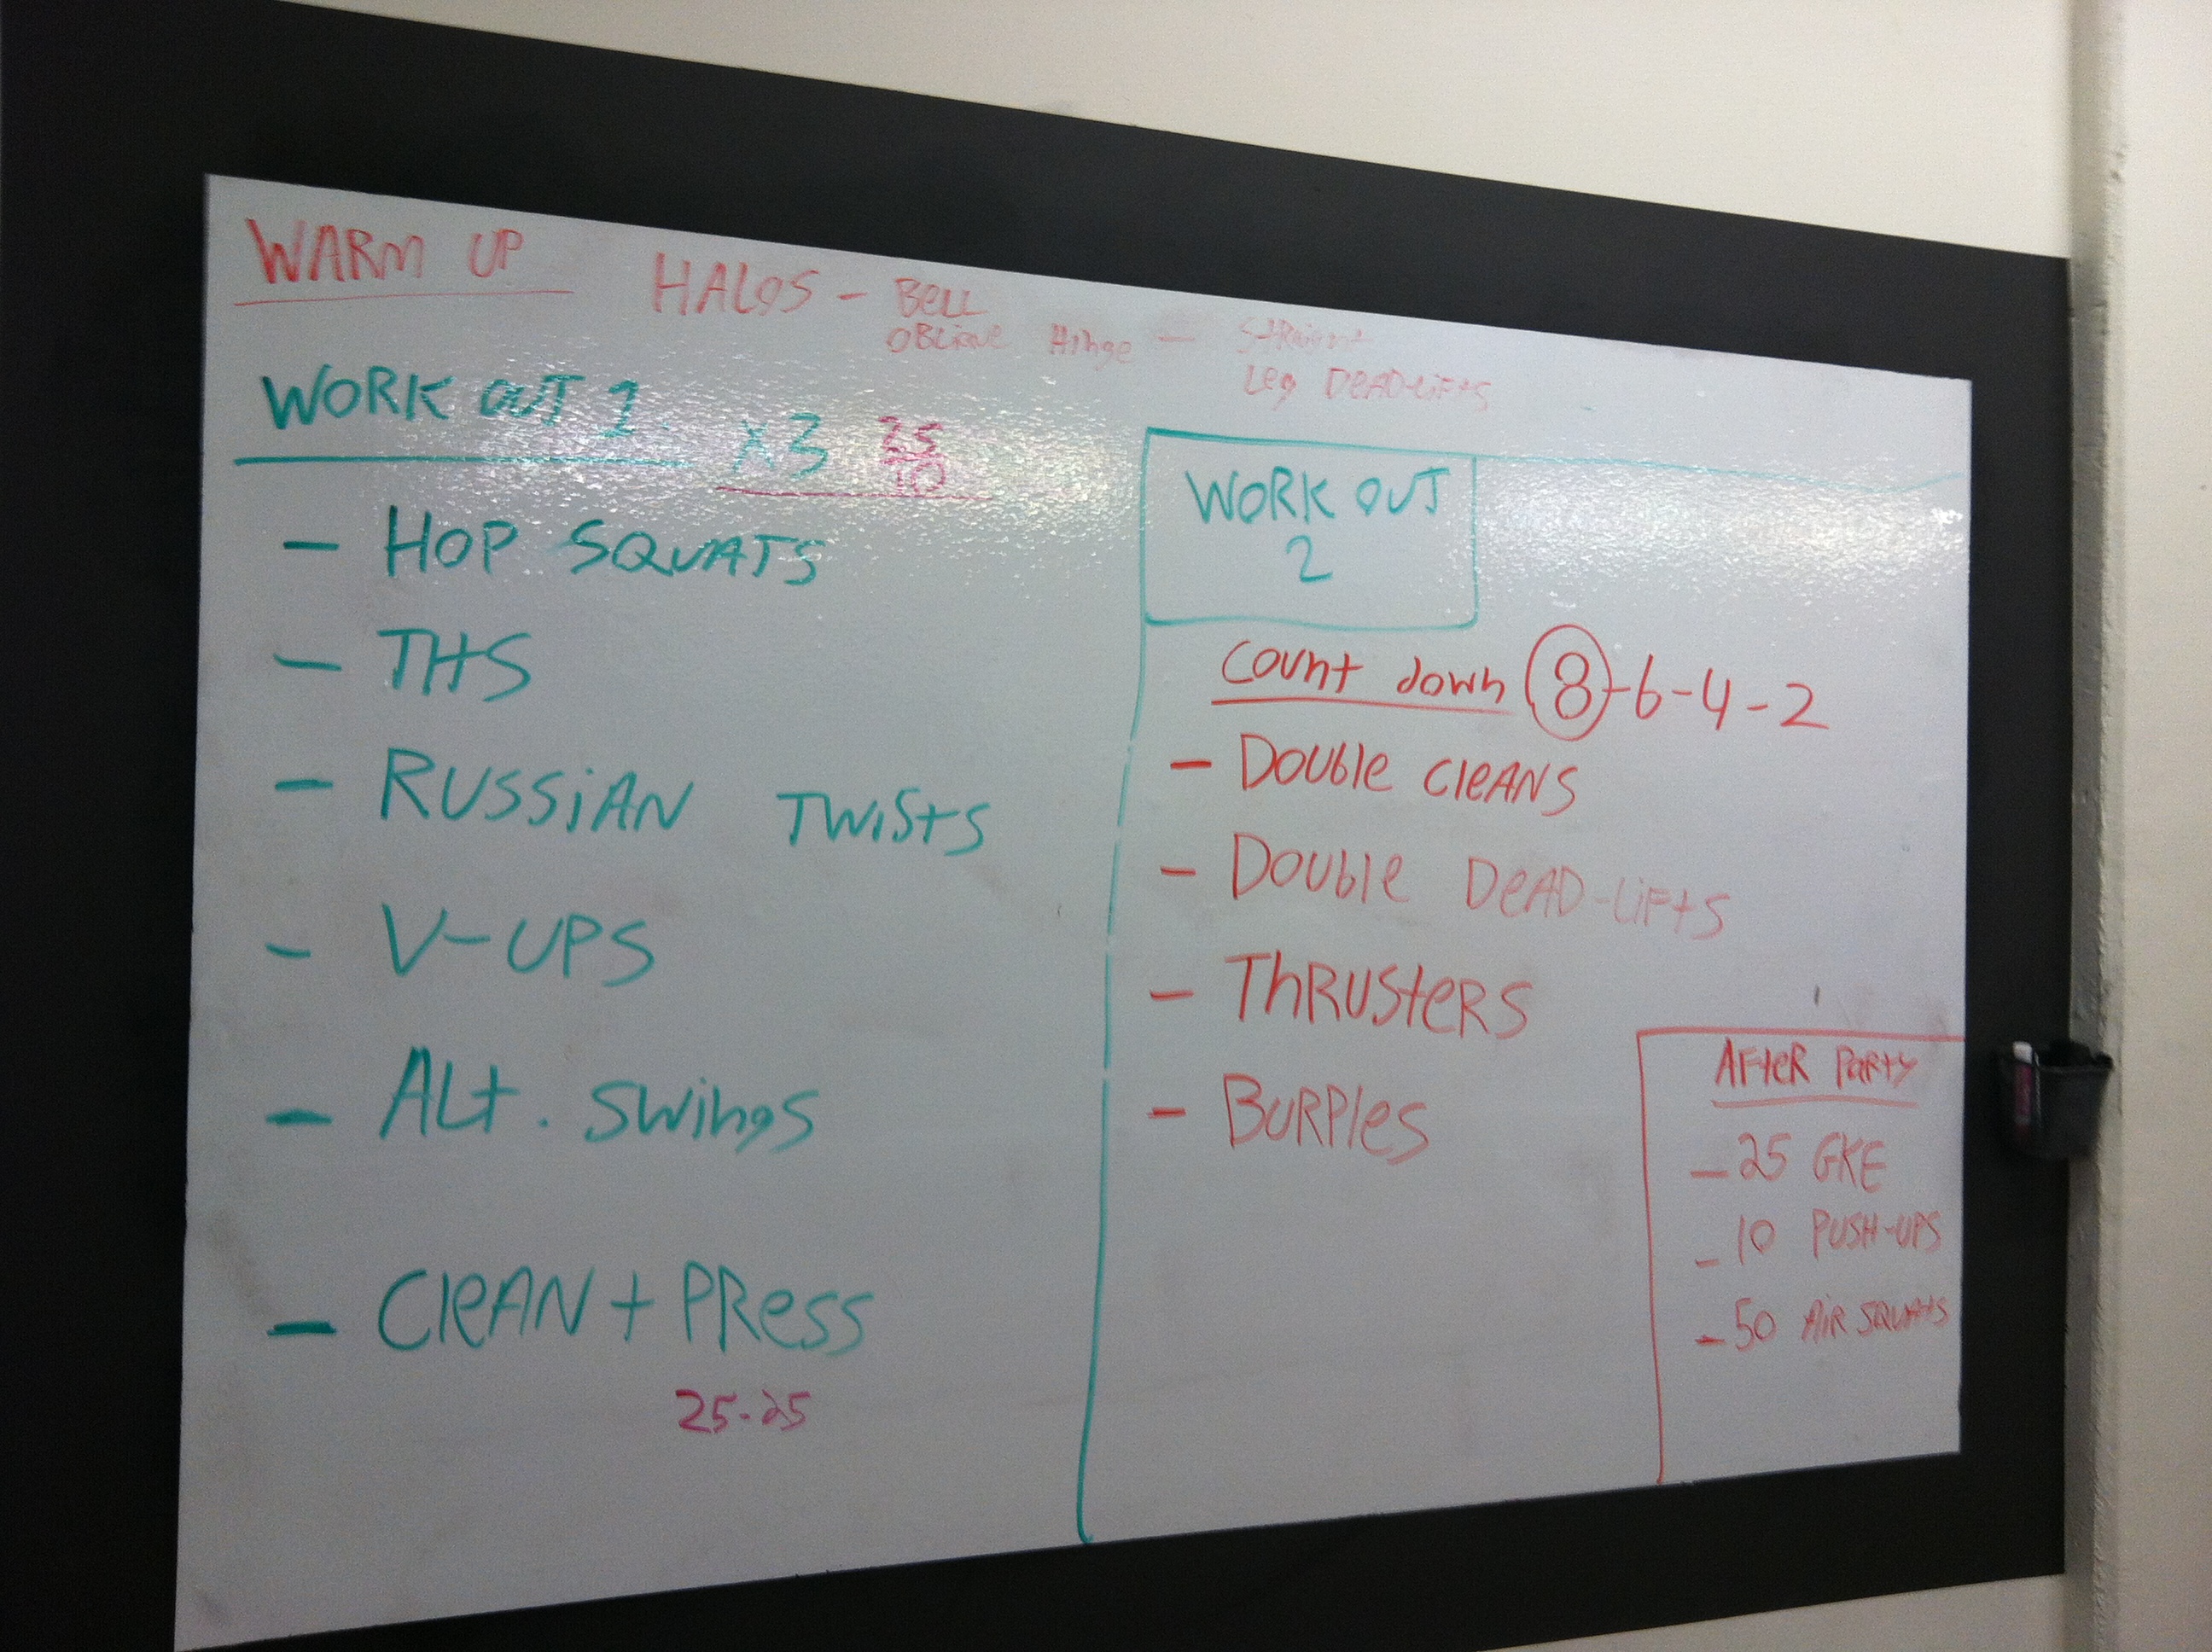 WARM UP HALOS - BELL
OBLIQUE Hinge - STRAIGHT
Leg DEAD-LiFtS
WORK OUT 1 x3 35
10
- HOP SQUATS
- THS
- RUSSiAN TWiStS
- V-UPS
- ALt. SWiNgS
- CleAN + PRess
25-25
WORK OUT
2
Count down 8-6-4-2
- Double CleANS
- Double DeAD-LiFtS
- ThRUSteRS
- BURPIes
AFteR PaRty
- 25 GKE
- 10 PUSH-UPS
- 50 AiR SQUAtS